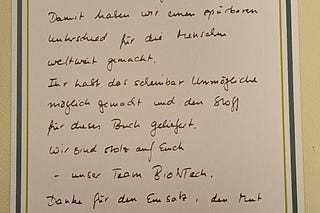 Damit haben wir einen spürbaren
Unterschied für die Menschen
weltweit gemacht.
Ihr habt das scheinbar Unmögliche
möglich gemacht und den Stoff
für dieses Buch geliefert.
Wir sind stolz auf Euch
- unser Team BioNTech.
Danke für den Einsatz, den Mut